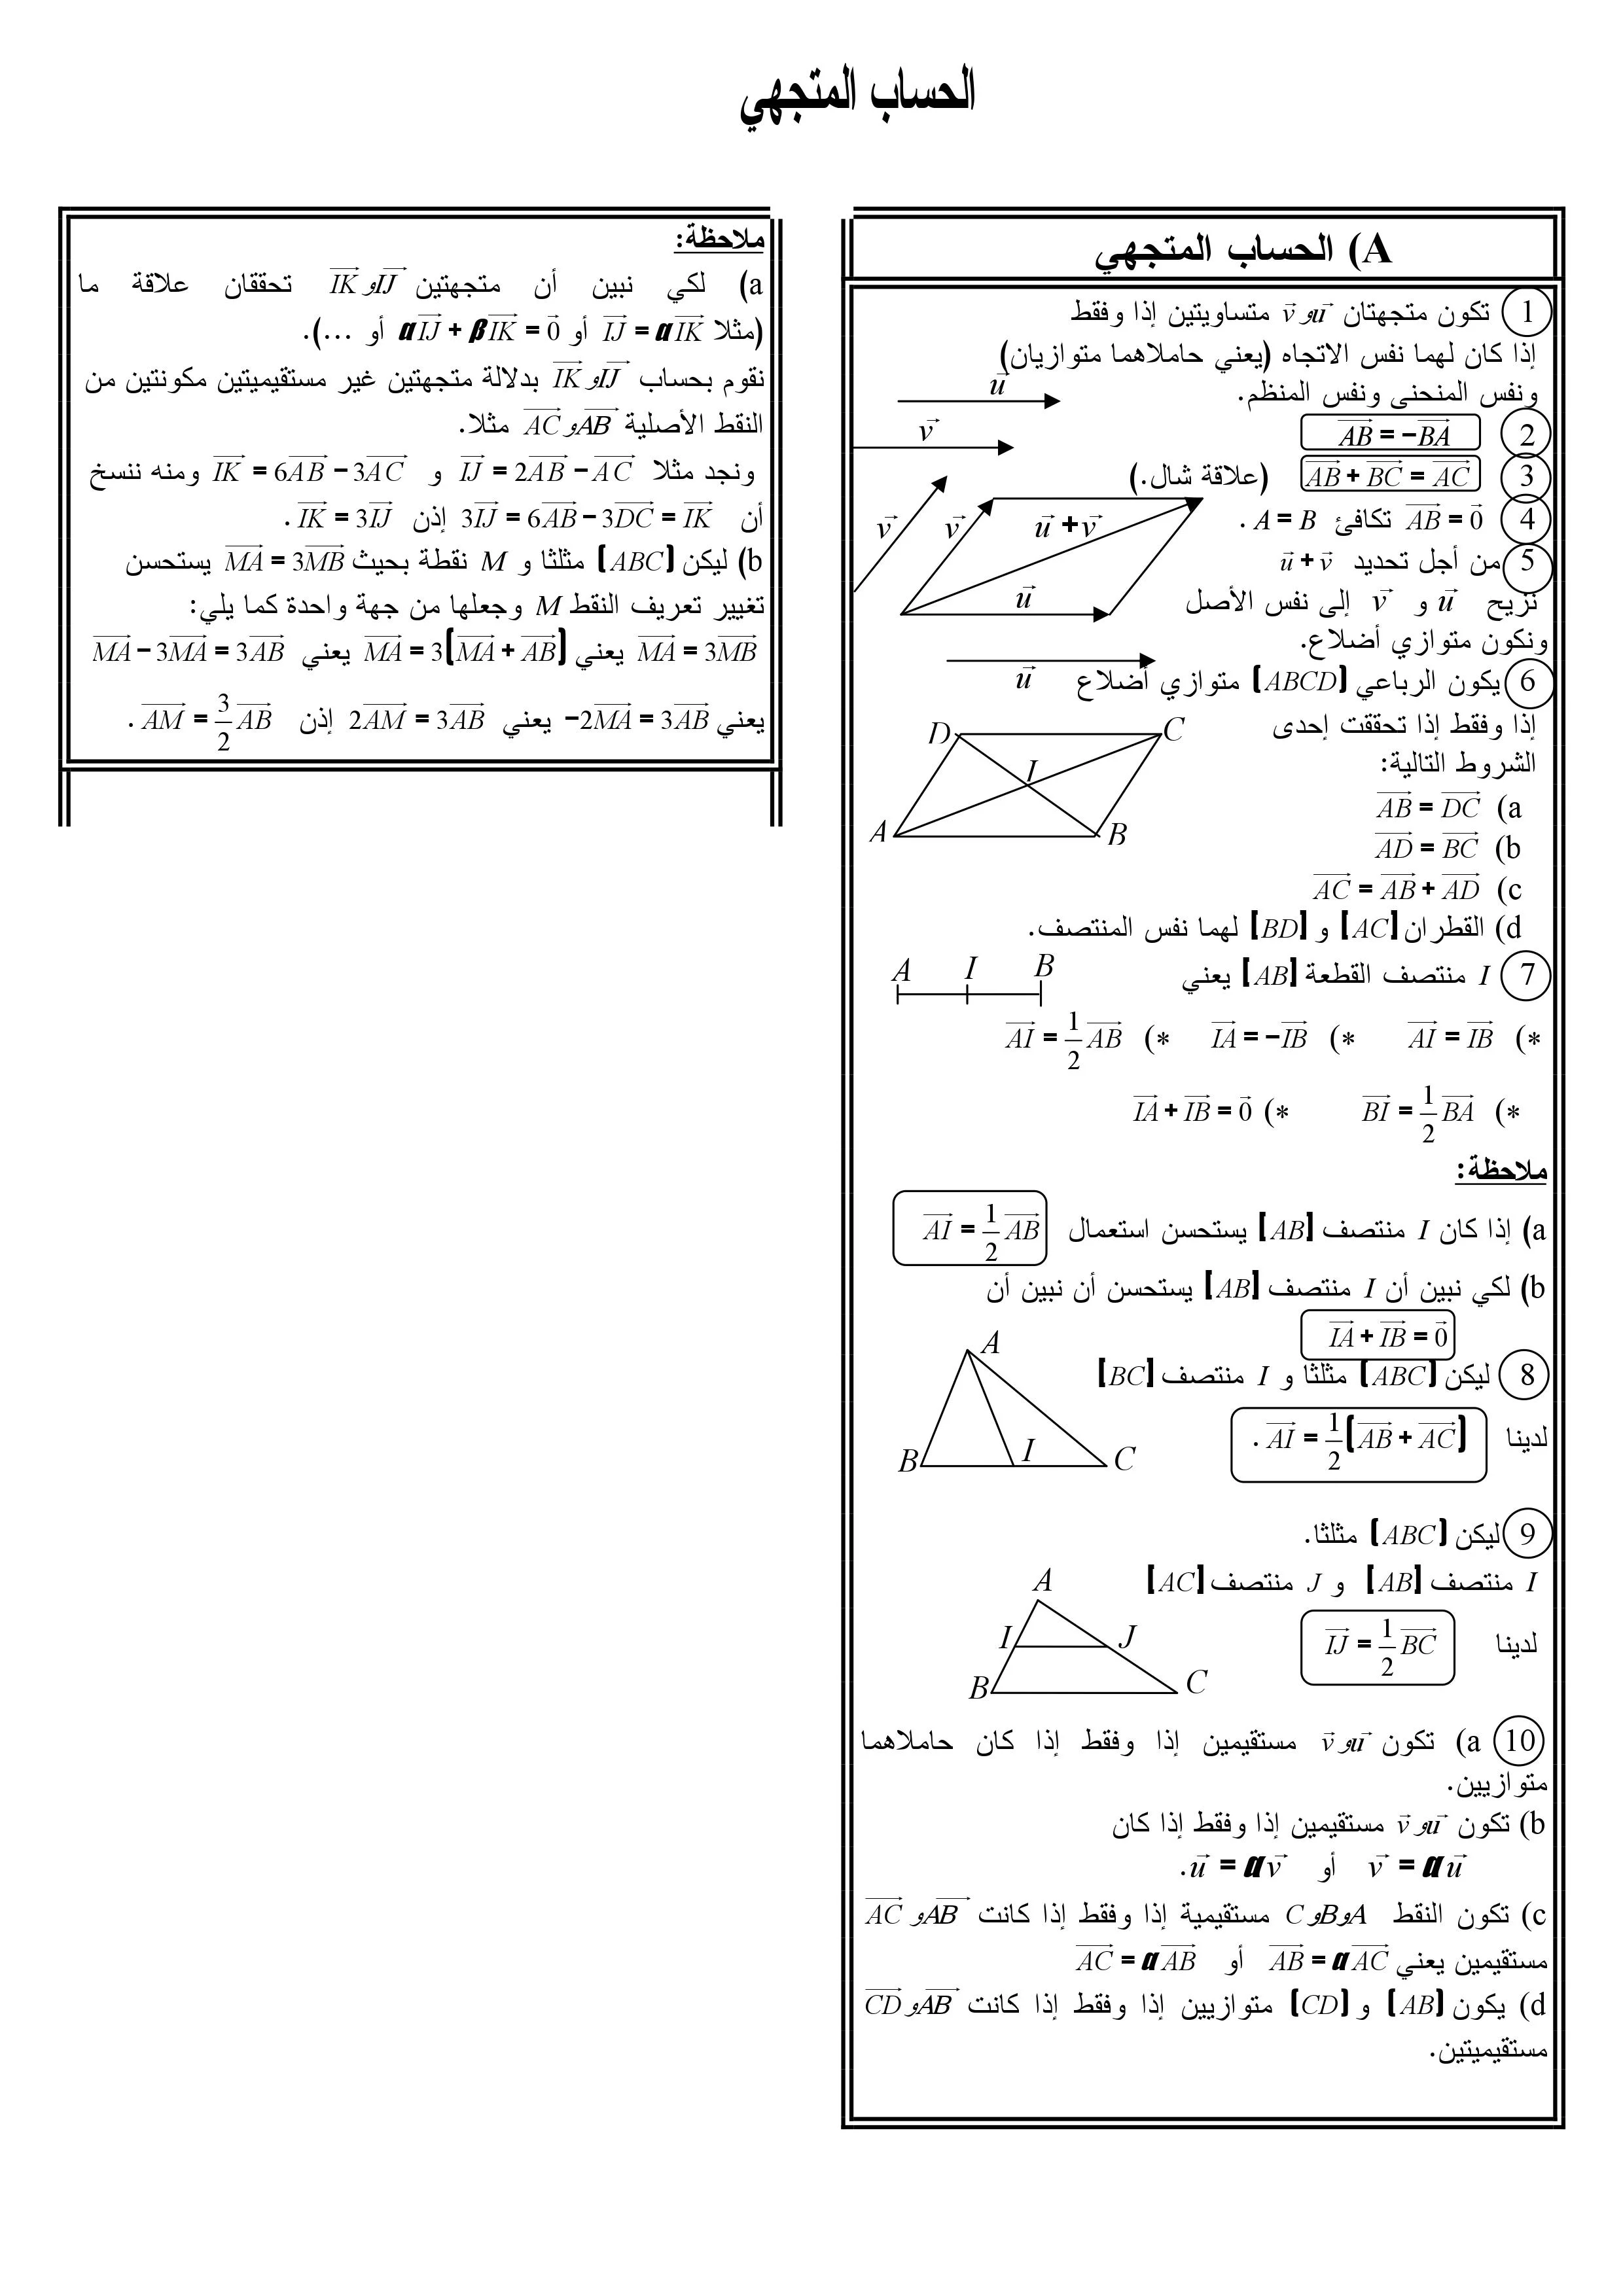 الحساب المتجهي
A) الحساب المتجهي
1 تكون متجهتان $\vec{u}$ و $\vec{v}$ متساويتين إذا وفقط
إذا كان لهما نفس الاتجاه (يعني حاملاهما متوازيان)
ونفس المنحنى ونفس المنظم.
$\vec{u}$
$\vec{v}$
2 $\overrightarrow{AB} = -\overrightarrow{BA}$
3 $\overrightarrow{AB} + \overrightarrow{BC} = \overrightarrow{AC}$ (علاقة شال.)
4 $\overrightarrow{AB} = \vec{0}$ تكافئ $A = B$ .
5 من أجل تحديد $\vec{u} + \vec{v}$
نزيح $\vec{u}$ و $\vec{v}$ إلى نفس الأصل
ونكون متوازي أضلاع.
$\vec{v}$ $\vec{v}$ $\vec{u} + \vec{v}$
$\vec{u}$
$\vec{u}$
6 يكون الرباعي (ABCD) متوازي أضلاع
إذا وفقط إذا تحققت إحدى
الشروط التالية:
D C
I
A B
a) $\overrightarrow{AB} = \overrightarrow{DC}$
b) $\overrightarrow{AD} = \overrightarrow{BC}$
c) $\overrightarrow{AC} = \overrightarrow{AB} + \overrightarrow{AD}$
d) القطران [AC] و [BD] لهما نفس المنتصف.
7 I منتصف القطعة [AB] يعني
A I B
*) $\overrightarrow{AI} = \overrightarrow{IB}$ *) $\overrightarrow{IA} = -\overrightarrow{IB}$ *) $\overrightarrow{AI} = \frac{1}{2}\overrightarrow{AB}$
*) $\overrightarrow{BI} = \frac{1}{2}\overrightarrow{BA}$ *) $\overrightarrow{IA} + \overrightarrow{IB} = \vec{0}$
ملاحظة:
a) إذا كان I منتصف [AB] يستحسن استعمال $\overrightarrow{AI} = \frac{1}{2}\overrightarrow{AB}$
b) لكي نبين أن I منتصف [AB] يستحسن أن نبين أن
$\overrightarrow{IA} + \overrightarrow{IB} = \vec{0}$
8 ليكن (ABC) مثلثا و I منتصف [BC]
لدينا $\overrightarrow{AI} = \frac{1}{2}(\overrightarrow{AB} + \overrightarrow{AC})$ .
A
B I C
9 ليكن (ABC) مثلثا.
I منتصف [AB] و J منتصف [AC]
لدينا $\overrightarrow{IJ} = \frac{1}{2}\overrightarrow{BC}$
A
I J
B C
10 a) تكون $\vec{u}$ و $\vec{v}$ مستقيمين إذا وفقط إذا كان حاملاهما
متوازيين.
b) تكون $\vec{u}$ و $\vec{v}$ مستقيمين إذا وفقط إذا كان
$\vec{v} = \alpha\vec{u}$ أو $\vec{u} = \alpha\vec{v}$.
c) تكون النقط A و B و C مستقيمية إذا وفقط إذا كانت $\overrightarrow{AB}$ و $\overrightarrow{AC}$
مستقيمين يعني $\overrightarrow{AB} = \alpha\overrightarrow{AC}$ أو $\overrightarrow{AC} = \alpha\overrightarrow{AB}$
d) يكون (AB) و (CD) متوازيين إذا وفقط إذا كانت $\overrightarrow{AB}$ و $\overrightarrow{CD}$
مستقيميتين.
ملاحظة:
a) لكي نبين أن متجهتين $\overrightarrow{IJ}$ و $\overrightarrow{IK}$ تحققان علاقة ما
(مثلا $\overrightarrow{IJ} = \alpha\overrightarrow{IK}$ أو $\alpha\overrightarrow{IJ} + \beta\overrightarrow{IK} = \vec{0}$ أو ...).
نقوم بحساب $\overrightarrow{IJ}$ و $\overrightarrow{IK}$ بدلالة متجهتين غير مستقيميتين مكونتين من
النقط الأصلية $\overrightarrow{AB}$ و $\overrightarrow{AC}$ مثلا.
ونجد مثلا $\overrightarrow{IJ} = 2\overrightarrow{AB} - \overrightarrow{AC}$ و $\overrightarrow{IK} = 6\overrightarrow{AB} - 3\overrightarrow{AC}$ ومنه ننسخ
أن $3\overrightarrow{IJ} = 6\overrightarrow{AB} - 3\overrightarrow{DC} = \overrightarrow{IK}$ إذن $\overrightarrow{IK} = 3\overrightarrow{IJ}$ .
b) ليكن (ABC) مثلثا و M نقطة بحيث $\overrightarrow{MA} = 3\overrightarrow{MB}$ يستحسن
تغيير تعريف النقط M وجعلها من جهة واحدة كما يلي:
$\overrightarrow{MA} = 3\overrightarrow{MB}$ يعني $\overrightarrow{MA} = 3(\overrightarrow{MA} + \overrightarrow{AB})$ يعني $\overrightarrow{MA} - 3\overrightarrow{MA} = 3\overrightarrow{AB}$
يعني $-2\overrightarrow{MA} = 3\overrightarrow{AB}$ يعني $2\overrightarrow{AM} = 3\overrightarrow{AB}$ إذن $\overrightarrow{AM} = \frac{3}{2}\overrightarrow{AB}$ .